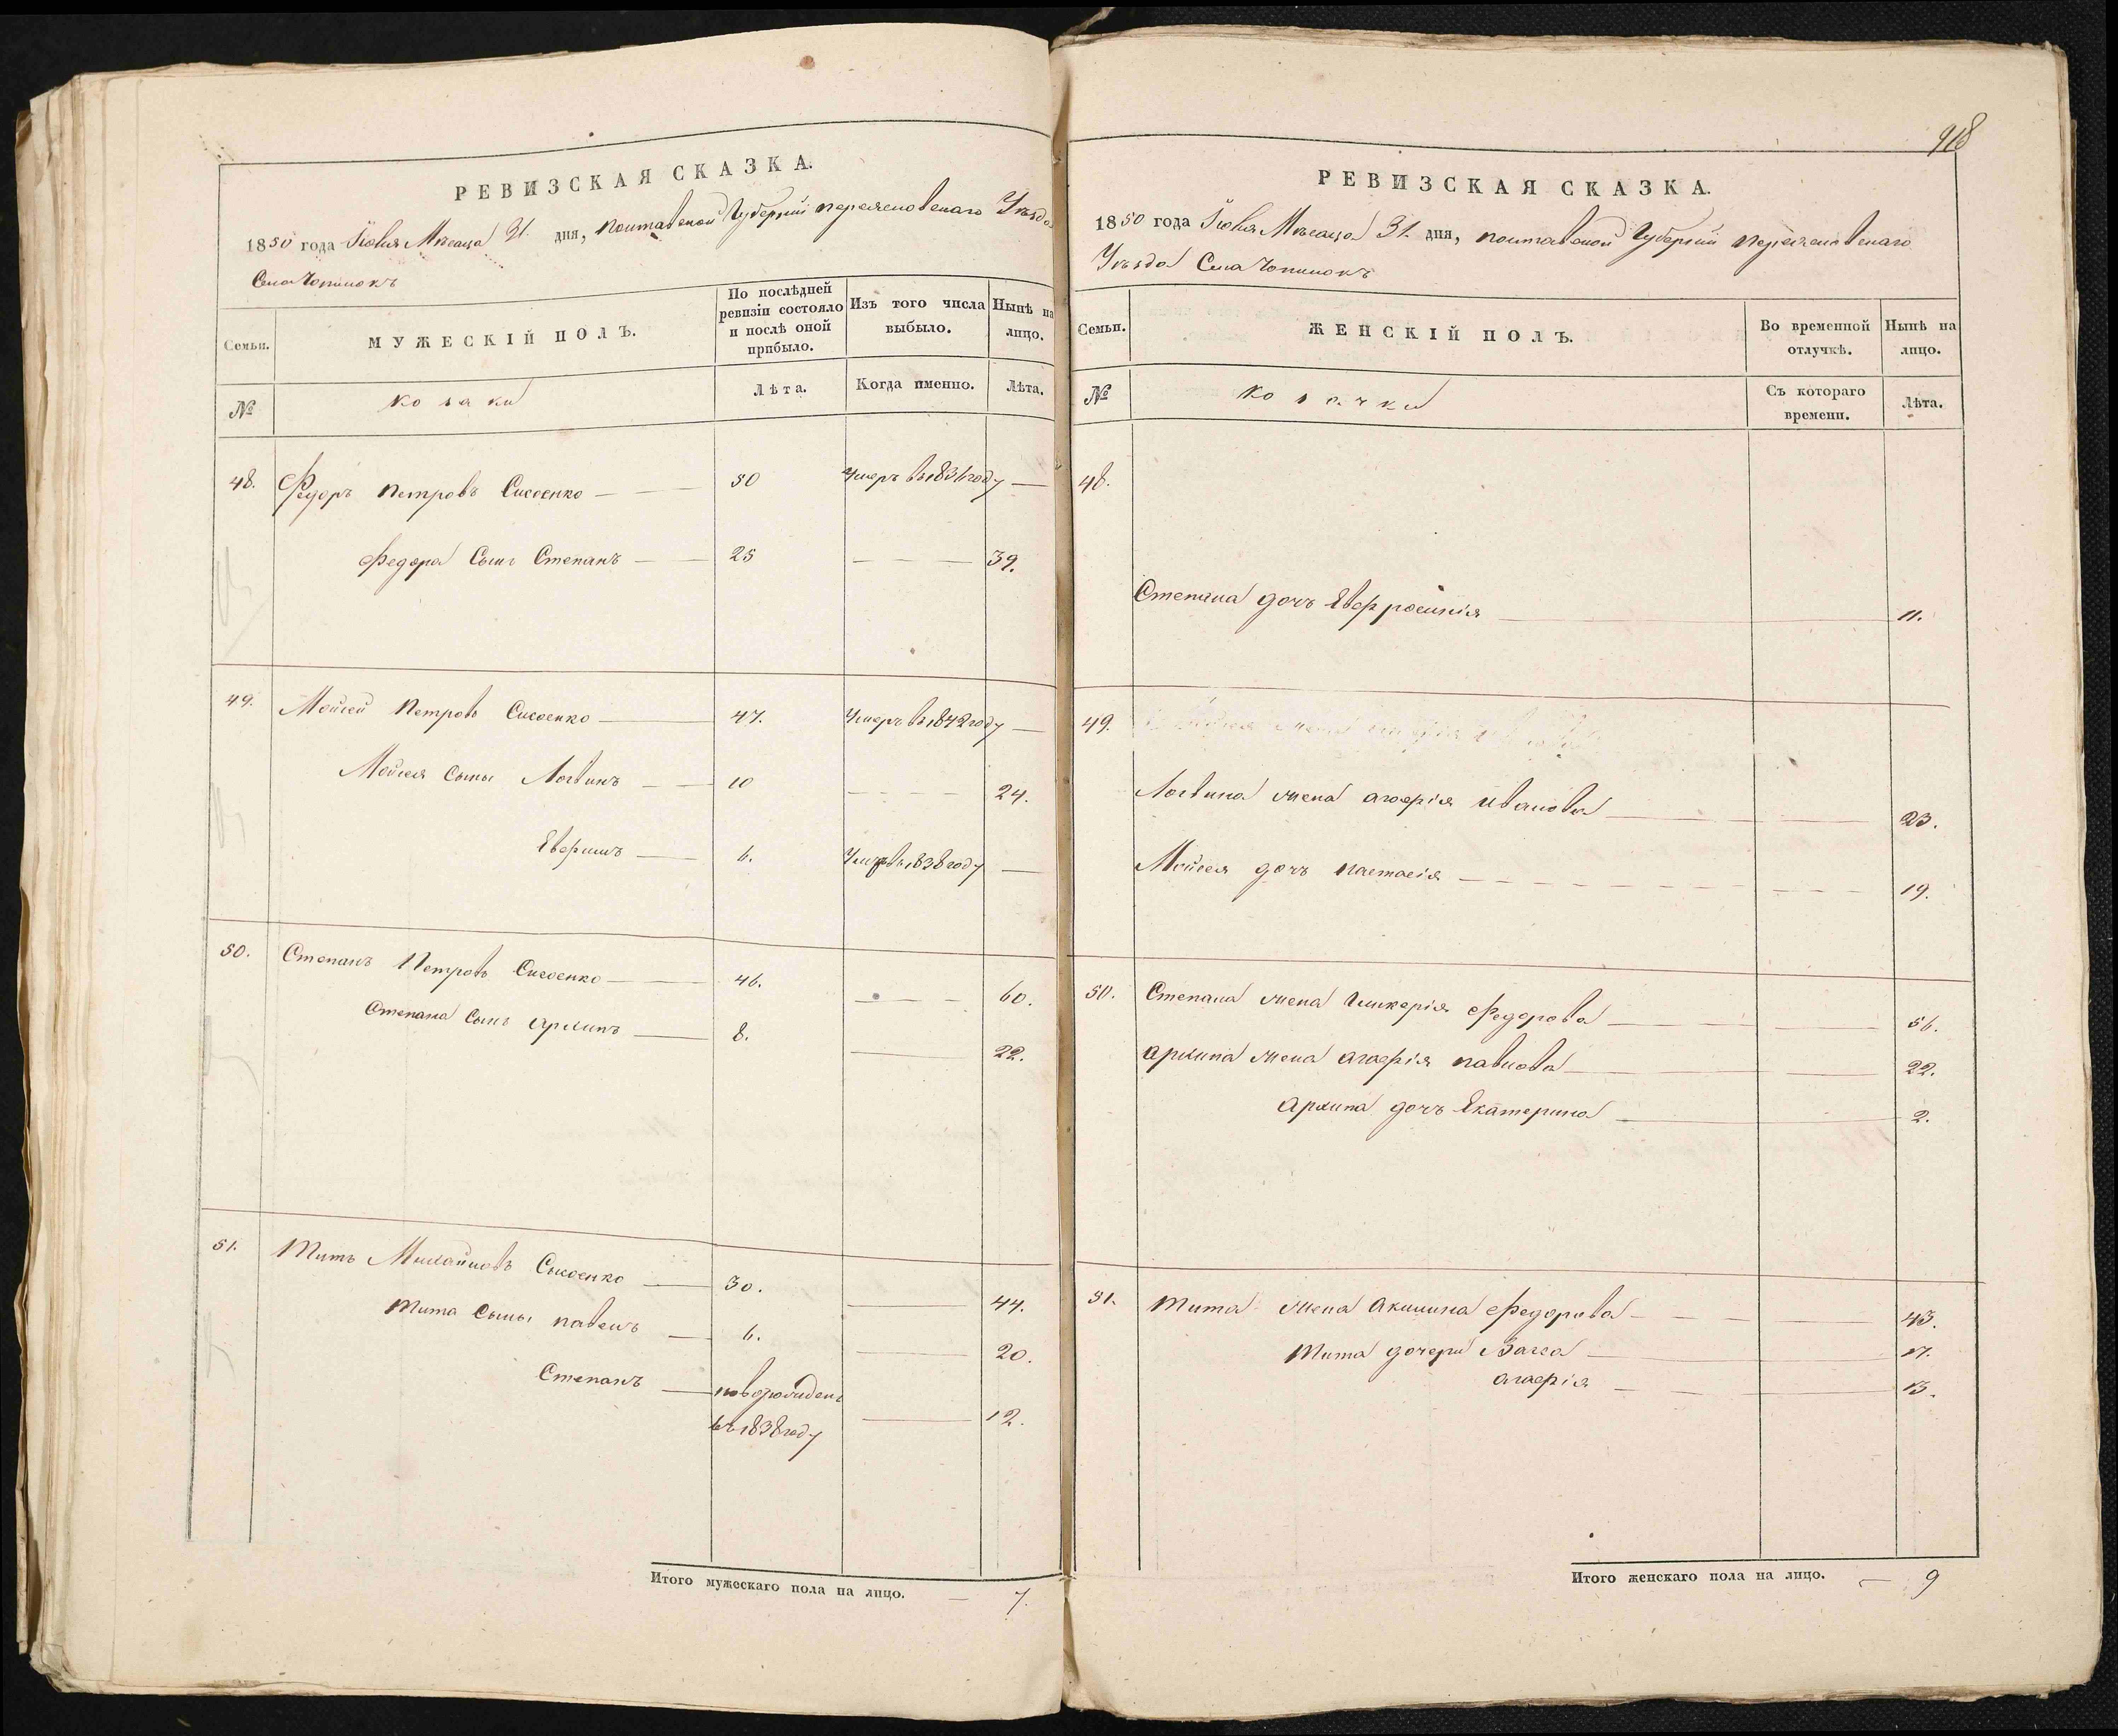 РЕВИЗСКАЯ СКАЗКА.
1850 года Июля Месяца 31. дня, Полтавской Губерніи Переяславского Уѣзда
Села Чопилокъ
Семьи.
МУЖЕСКІЙ ПОЛЪ.
По послѣдней ревизіи состояло и послѣ оной прибыло.
Изъ того числа выбыло.
Нынѣ на лицо.
№
козаки
Лѣта.
Когда именно.
Лѣта.
48. Федоръ Петровъ Сисоенко — 50 Умеръ въ 1836 году —
Федора Сынъ Степанъ — 25 — 39.
49. Мойсей Петровъ Сисоенко — 47. Умеръ въ 1842 году —
Мойсея Сыны Логвинъ — 10 — 24.
6. Умеръ въ 1838 году —
50. Степанъ Петровъ Сисоенко — 46. — 60.
Степана Сынъ Архипъ — 8. — 22.
51. Титъ Михайловъ Сысоенко — 30. — 44.
Тита Сыны Павелъ — 6. — 20.
Степанъ — новорожденъ — 12.
въ 1838 году
Итого мужескаго пола на лицо. — 7.
918
РЕВИЗСКАЯ СКАЗКА.
1850 года Июля Месяца 31. дня, Полтавской Губерніи Переяславского
Уѣзда Села Чопилокъ
Семьи.
ЖЕНСКІЙ ПОЛЪ.
Во временной отлучкѣ.
Нынѣ на лицо.
№
козачки
Съ котораго времени.
Лѣта.
48.
Степана дочь Евфросинія — 11.
49.
Логвина жена Агафія Иванова — 23.
Мойсея дочь Настасія — 19.
50. Степана жена Гликерія Федорова — 56.
Архипа жена Агафія Павлова — 22.
Архипа дочь Екатерина — 2.
51. Тита жена Акилина Федорова — 43.
Тита дочери Васса — 17.
Агафія — 13.
Итого женскаго пола на лицо. — 9